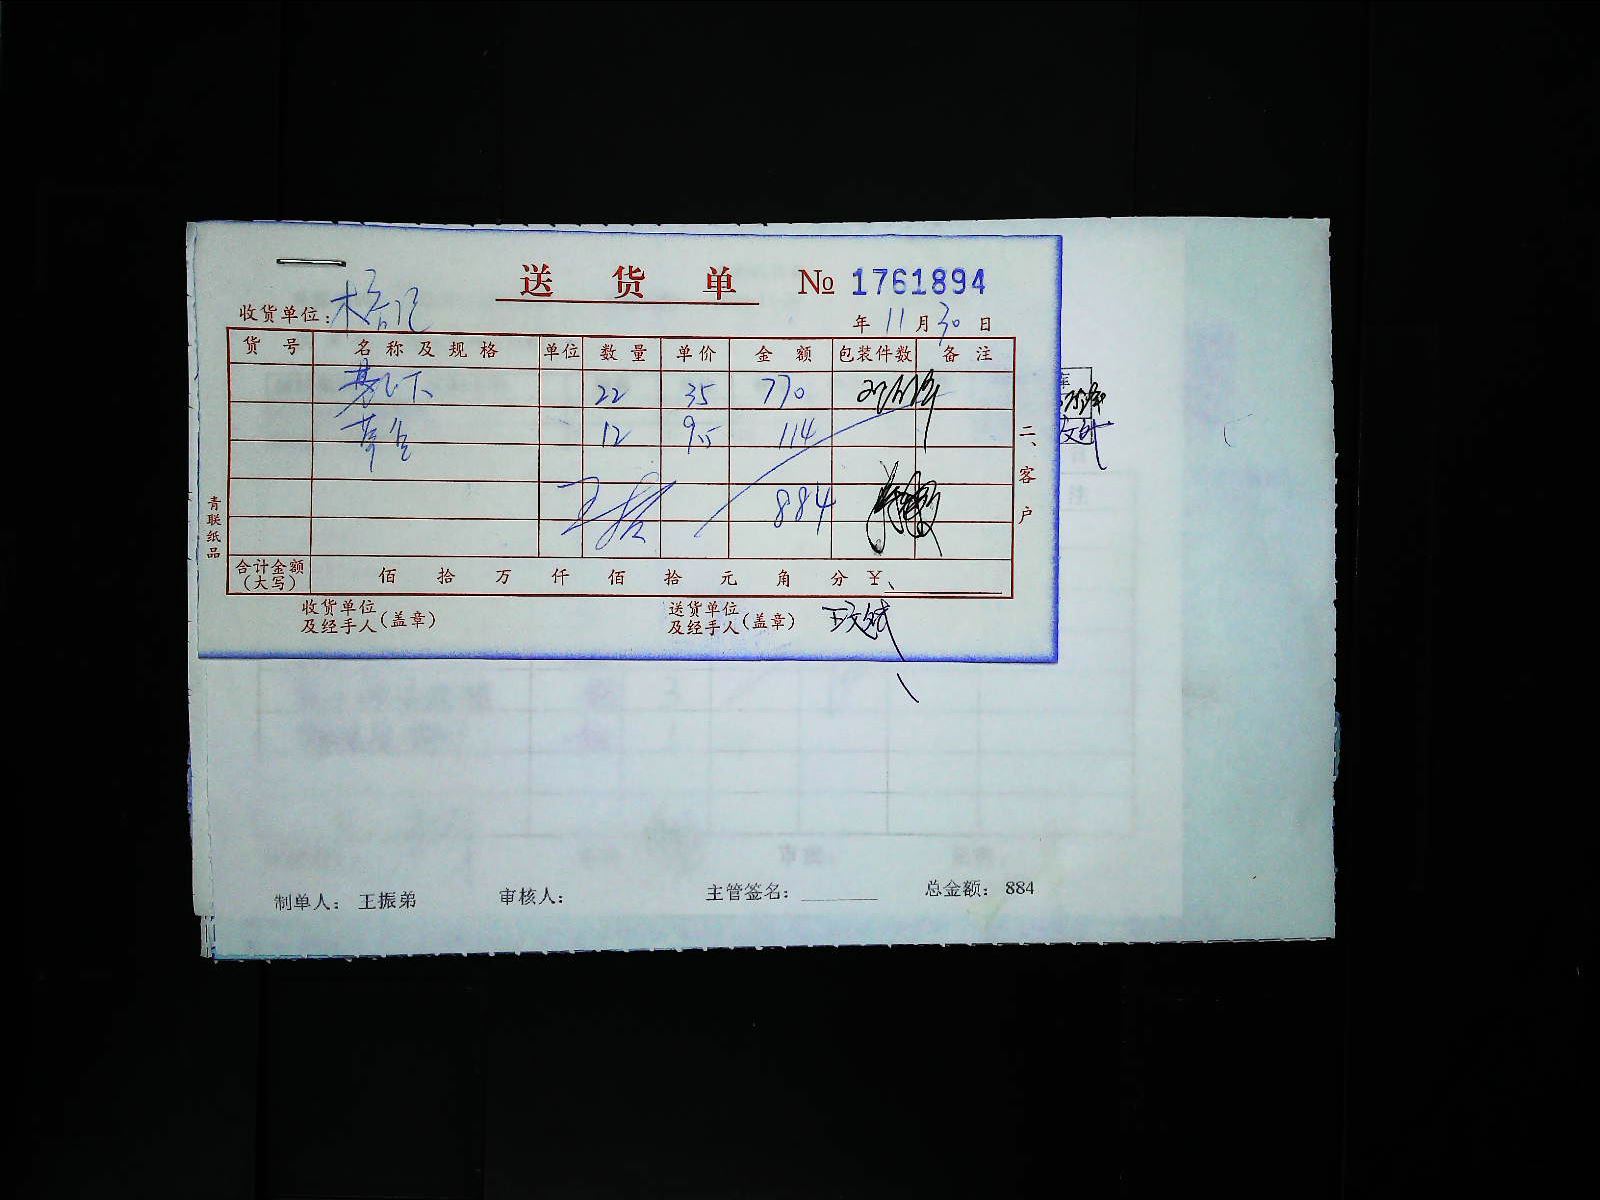 送 货 单 № 1761894
收货单位: 年 11 月 30 日
货 号 名 称 及 规 格 单位 数 量 单 价 金 额 包装件数 备 注
基以下 22 35 770
12 9.5 114
王 884
合计金额(大写) 佰 拾 万 仟 佰 拾 元 角 分 ¥
收货单位及经手人(盖章) 送货单位及经手人(盖章)
二、客户
青联纸品
制单人: 王振弟 审核人: 主管签名: 总金额: 884